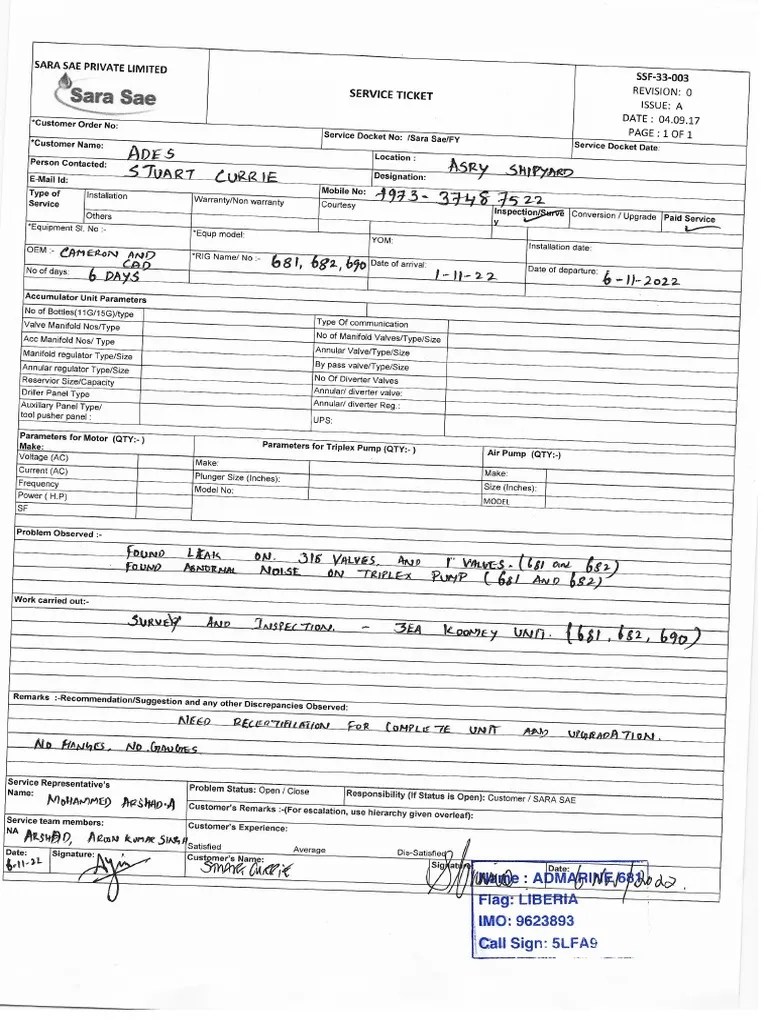 SARA SAE PRIVATE LIMITED
Sara Sae
SERVICE TICKET
SSF-33-003
REVISION: 0
ISSUE: A
DATE : 04.09.17
PAGE : 1 OF 1
*Customer Order No:
Service Docket No: /Sara Sae/FY
Service Docket Date:
*Customer Name: ADES
Location : ASRY SHIPYARD
Person Contacted: STUART CURRIE
Designation:
E-Mail Id:
Mobile No: +973-3748 7522
Type of Service
Installation
Others
Warranty/Non warranty
Courtesy
Inspection/Survey
Conversion / Upgrade
Paid Service
*Equipment Sl. No :-
*Equp model:
YOM:
Installation date:
OEM :- CAMERON AND CAD
*RIG Name/ No :- 681, 682, 690
Date of arrival: 1-11-22
Date of departure: 6-11-2022
No of days: 6 DAYS
Accumulator Unit Parameters
No of Bottles(11G/15G)/type
Type Of communication
Valve Manifold Nos/Type
No of Manifold Valves/Type/Size
Acc Manifold Nos/ Type
Annular Valve/Type/Size
Manifold regulator Type/Size
By pass valve/Type/Size
Annular regulator Type/Size
No Of Diverter Valves
Reservior Size/Capacity
Annular/ diverter valve:
Driler Panel Type
Annular/ diverter Reg :
Auxillary Panel Type/
tool pusher panel :
UPS:
Parameters for Motor (QTY:- )
Parameters for Triplex Pump (QTY:- )
Air Pump (QTY:-)
Make:
Voltage (AC)
Make:
Make:
Current (AC)
Plunger Size (Inches):
Size (Inches):
Frequency
Model No:
MODEL
Power ( H.P)
SF
Problem Observed :-
FOUND LEAK ON 316 VALVES AND 1" VALVES. (681 and 682)
FOUND ABNORMAL NOISE ON TRIPLEX PUMP (681 AND 682)
Work carried out:-
SURVEY AND INSPECTION. - 3EA KOOMEY UNIT. (681, 682, 690)
Remarks :-Recommendation/Suggestion and any other Discrepancies Observed:
NEED RECERTIFICATION FOR COMPLETE UNIT AND UPGRADATION.
NO FLANGES, NO GAUGES
Service Representative's
Name: MOHAMMED ARSHAD.A
Problem Status: Open / Close
Responsibility (If Status is Open): Customer / SARA SAE
Customer's Remarks :-(For escalation, use hierarchy given overleaf):
Service team members:
NA ARSHAD, ARUN KUMAR SINGH
Customer's Experience:
Satisfied
Average
Dis-Satisfied
Date: 6-11-22
Signature:
Customer's Name: STUART CURRIE
Signature
Date: 6 NOV/2022.
Name : ADMARINE 681
Flag: LIBERIA
IMO: 9623893
Call Sign: 5LFA9